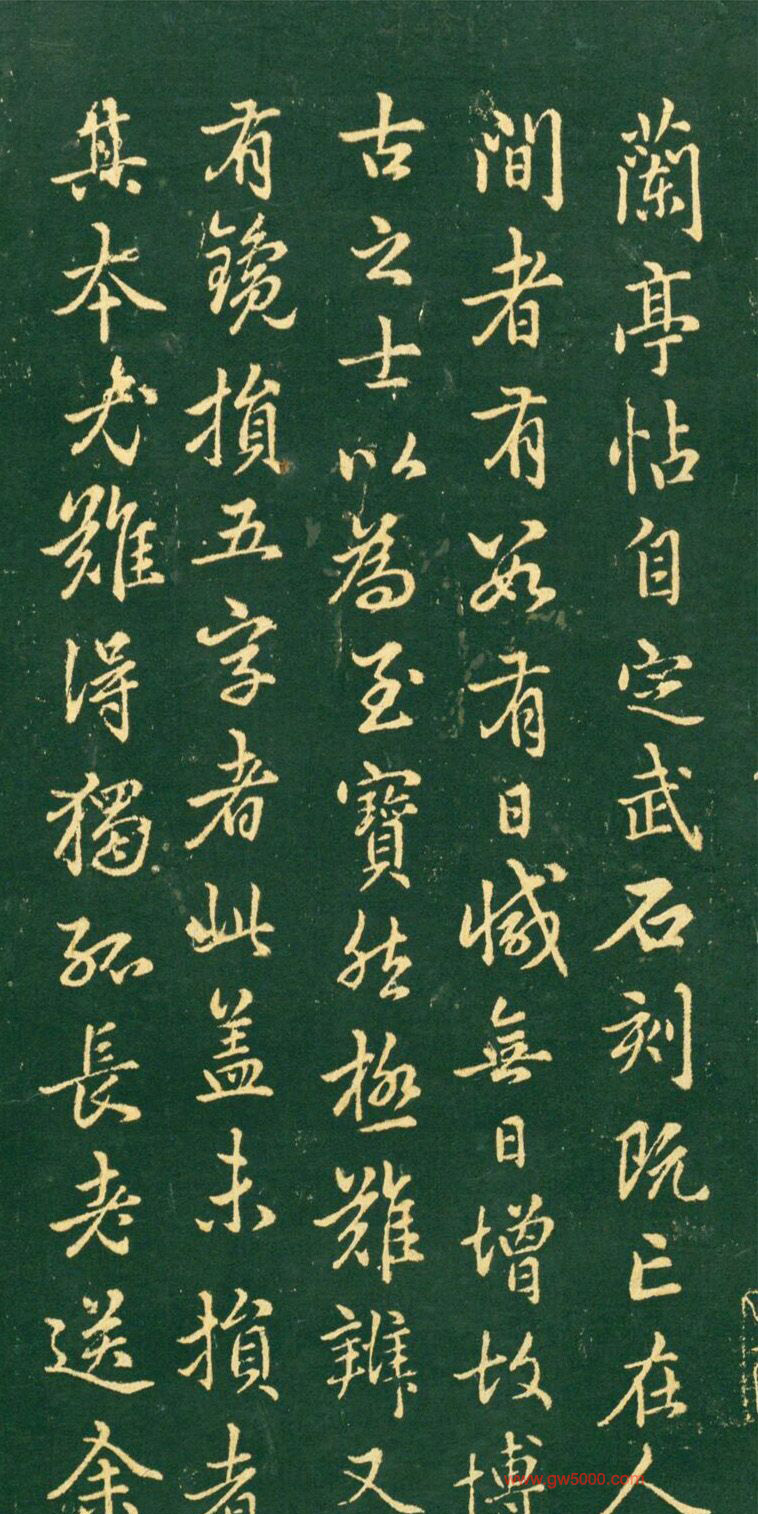 蘭亭帖自定武石刻既亡在人
間者有數有日減無日增故博
古之士以為至寶然極難辨又
有鐫損五字者此蓋未損者
其本尤難得獨孤長老送余
www.gw5000.com